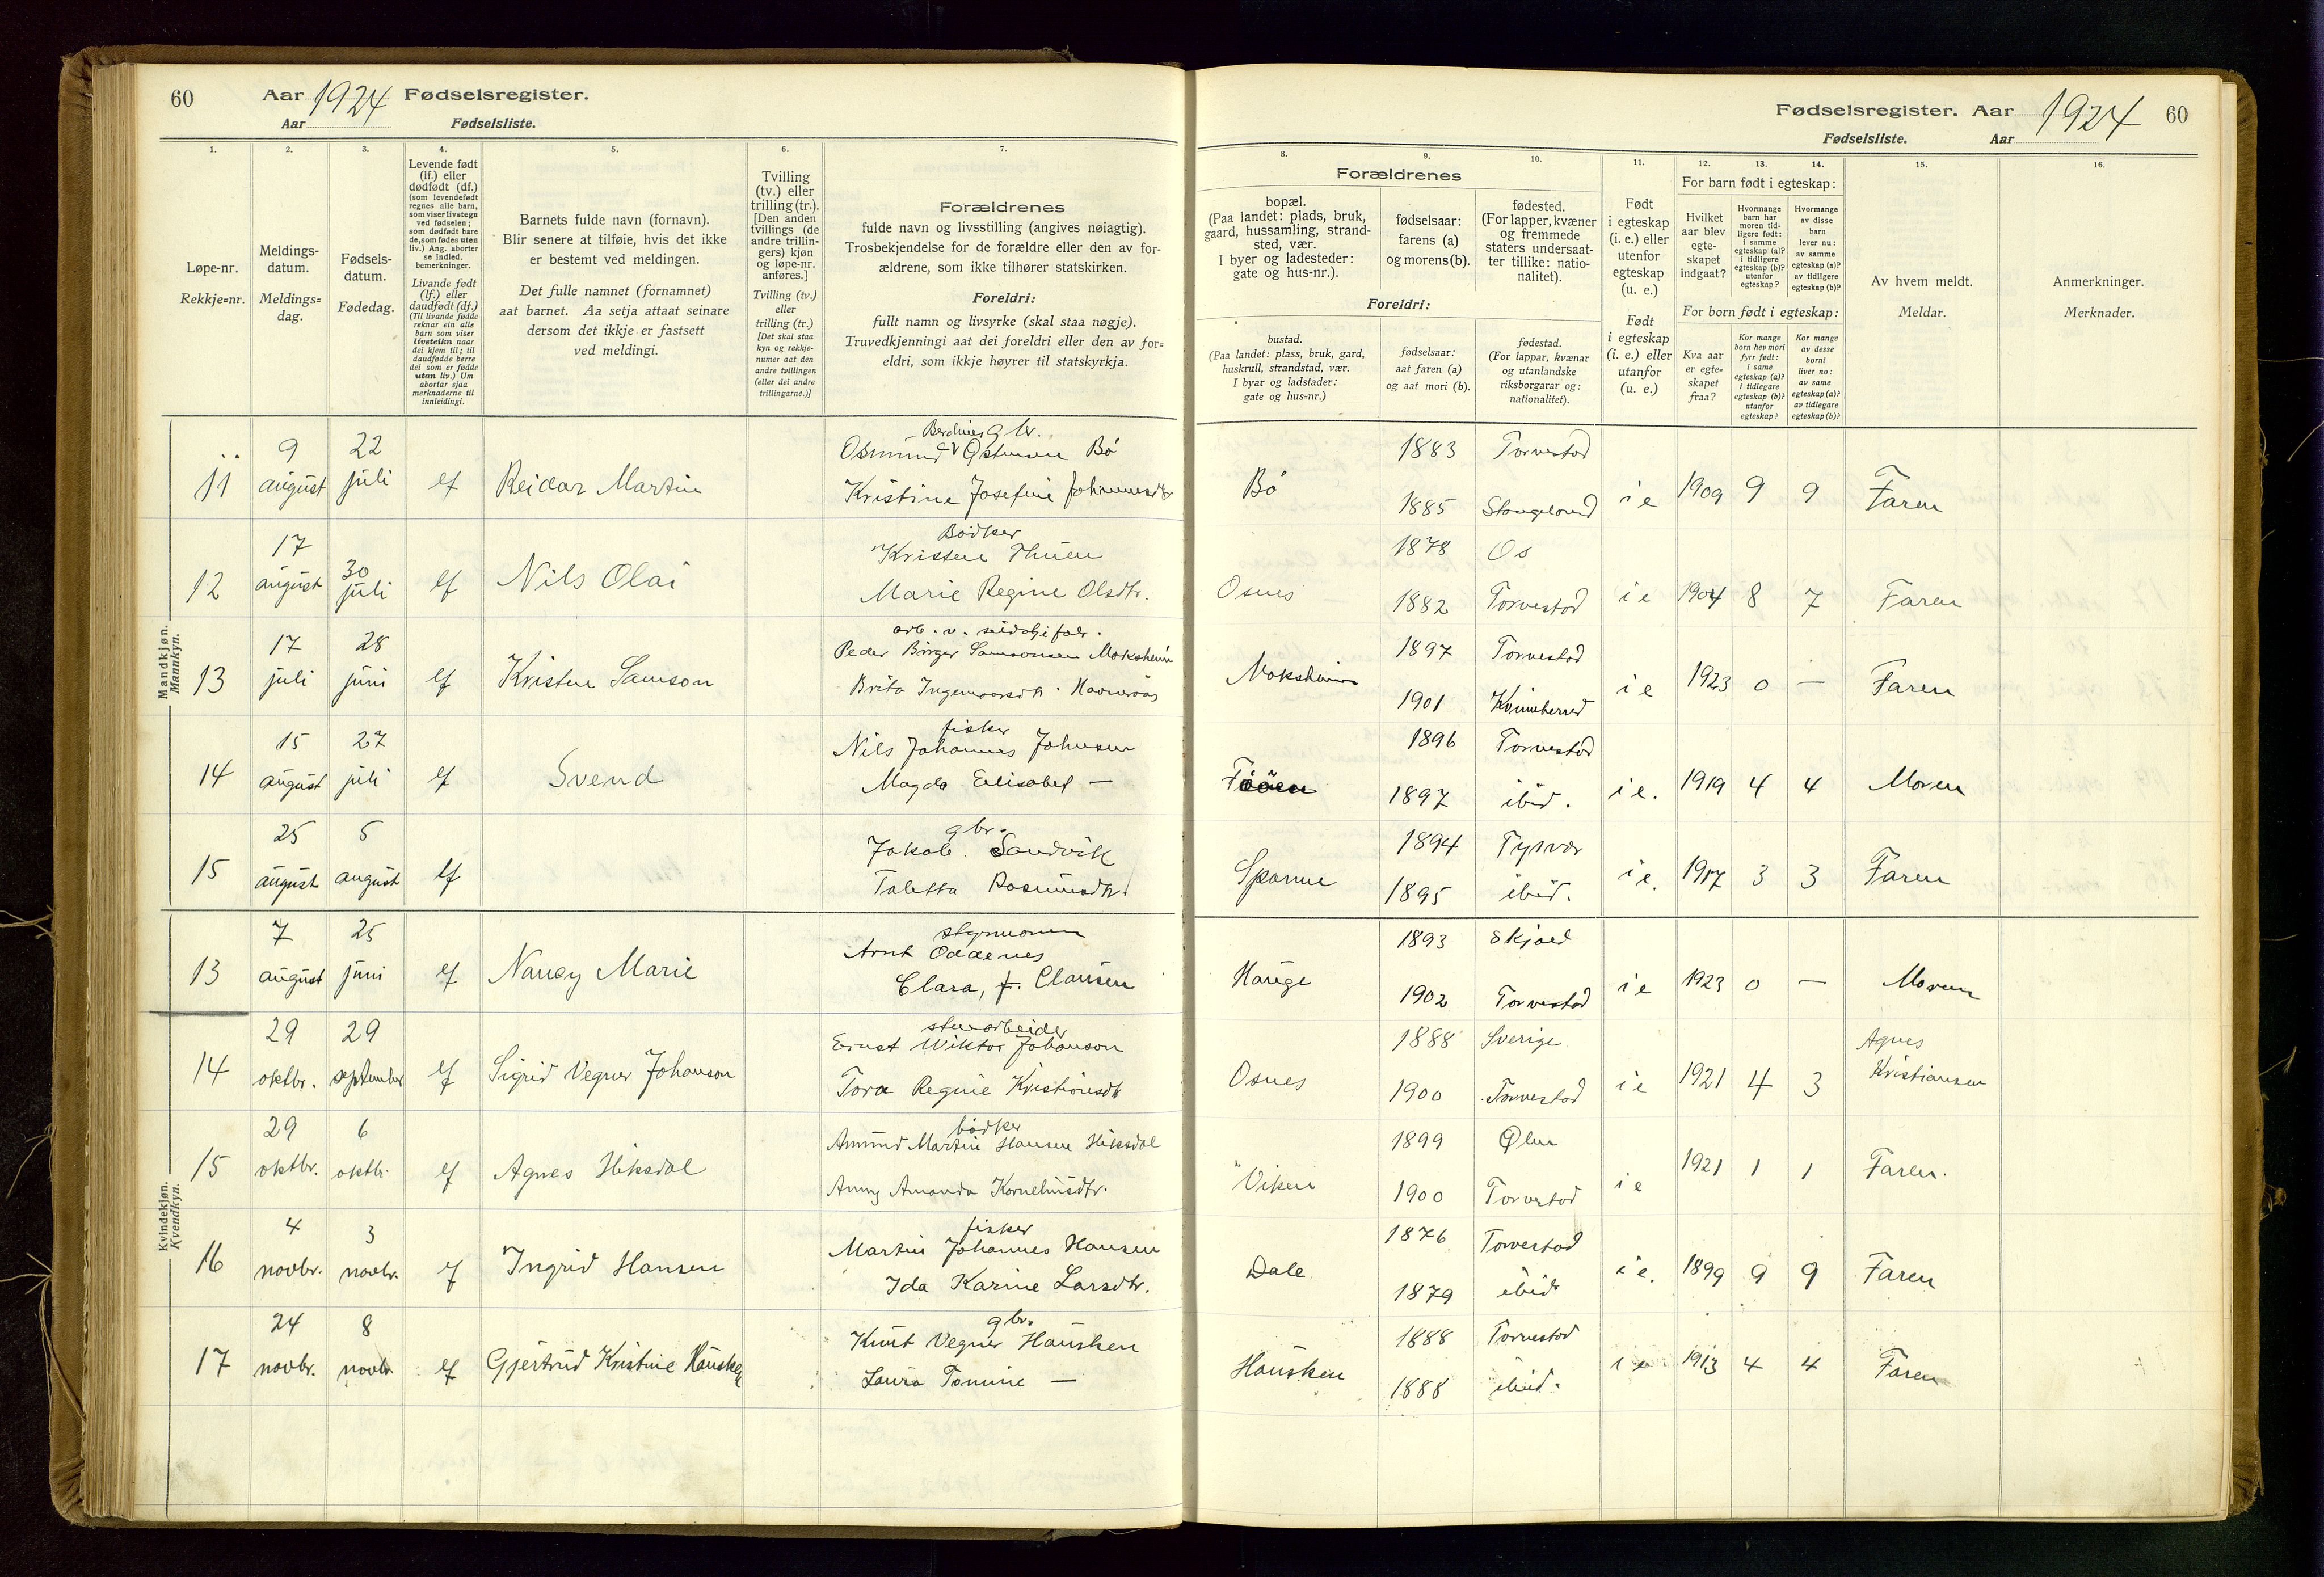 60 Aar 1924 Fødselsregister.
Aar Fødselsliste.
1. 2. 3. 4. 5. 6. 7.
Løpe-nr.
Rekkje=nr.
Meldings-
datum.
Meldings=
dag.
Fødsels-
datum.
Fødedag.
Levende født
(lf.) eller
dødfødt (df.)
(som levendefødt
regnes alle barn,
som viser livstegn
ved fødselen;
som dødfødt bare
de, som fødes uten
liv.) Ang. aborter
se indled.
bemerkninger.
Livande født
(lf.) eller
daudfødt (df.)
(Til livande fødde
reknar ein alle
barn som viser
livsteikn naar
dei kjem til; til
daudfødde berre
dei som er fødde
utan liv.) Um
abortar sjaa
merknaderne til
innleidingi.
Barnets fulde navn (fornavn).
Blir senere at tilføie, hvis det ikke
er bestemt ved meldingen.
Det fulle namnet (fornamnet)
aat barnet. Aa setja attaat seinare
dersom det ikkje er fastsett
ved meldingi.
Tvilling
(tv.) eller
trilling (tr.).
[Den anden
tvillings (de
andre trillin-
gers) kjøn
og løpe-nr.
anføres.]
Tvilling (tv.)
eller
trilling (tr.)
[Det skal staa
kyn og rekkje-
numer aat den
andre tvillingen
(eller dei andre
trillingarne.)]
Forældrenes
fulde navn og livsstilling (angives nøiagtig).
Trosbekjendelse for de forældre eller den av for-
ældrene, som ikke tilhører statskirken.
Foreldri:
fullt namn og livsyrke (skal staa nøgje).
Truvedkjenningi aat dei foreldri eller den av for=
eldri, som ikkje høyrer til statskyrkja.
Mandkjøn.
Mannkyn.
11 9 august 22 juli lf Reidar Martin
gbr.
Osmund Østensen Bø
Kristine Josefine Johannesdtr
12 17 august 30 juli lf Nils Olai
Bødker
Kristen Thuen
Marie Regine Olsdtr.
13 17 juli 28 juni lf Kristen Samson
Peder Birger Samsonsen Moksheim
Brita Ingemarsdtr.
14 15 august 27 juli lf Svend
fisker
Nils Johannes Johnsen
Magda Elisabet —
15 25 august 5 august lf
gbr.
Jakob Sandvik
Taletta Rasmusdtr.
Kvindekjøn.
Kvendkyn.
13 7 august 25 juni lf Nancy Marie
styrmann
Arnt Oddenes
Clara, f. Clausen
14 29 oktbr. 29 september lf Sigrid Vegner Johanson
stenarbeider
Ernst Wiktor Johanson
Tora Regine Kristiansdtr
15 29 oktbr. 6 oktbr. lf Agnes Hiksdal
bødker
Amund Martin Hansen Hiksdal
Anny Amanda Korneliusdtr.
16 4 novbr. 3 novbr. lf Ingrid Hansen
fisker
Martin Johannes Hansen
Ida Karine Larsdtr.
17 24 novbr. 8 novbr. lf Gjertrud Kristine Hausken
gbr.
Knut Vegner Hausken
Laura Tomine —
Fødselsregister. Aar 1924 60
Fødselsliste. Aar
8. 9. 10. 11. 12. 13. 14. 15. 16.
Forældrenes
bopæl.
(Paa landet: plads, bruk,
gaard, hussamling, strand-
sted, vær.
I byer og ladesteder:
gate og hus-nr.).
fødselsaar:
farens (a)
og morens (b).
fødested.
(For lapper, kvæner
og fremmede
staters undersaat-
ter tillike: natio-
nalitet).
Foreldri:
bustad.
(Paa landet: plass, bruk, gard,
huskrull, strandstad, vær.
I byar og ladstader:
gate og hus=nr.)
fødselsaar:
aat faren (a)
og aat mori (b).
fødestad.
(For lappar, kvænar
og utanlandske
riksborgarar og:
nationalitet).
Født
i egteskap
(i. e.) eller
utenfor
egteskap
(u. e.)
Født
i egteskap
(i. e.) eller
utanfor
(u. e.)
For barn født i egteskap:
Hvilket
aar blev
egte-
skapet
indgaat?
Hvormange
barn har
moren tid-
ligere født:
i samme
egteskap (a)?
i tidligere
egteskap (b)?
utenfor
egteskap?
Hvormange
av disse
barn
lever nu:
av samme
egteskap (a)?
av tidligere
egteskap (b)?
For born født i egteskap:
Kva aar
er egte=
skapet
fraa?
Kor mange
born hev mori
fyrr født:
i same
egteskap (a)?
i tidlegare
egteskap (b)?
utanfor
egteskap?
Kor mange
av desse
borni
liver no:
av same
egteskap (a)?
av tidlegare
egteskap (b)?
Av hvem meldt.
Meldar.
Anmerkninger.
Merknader.
Bø 1883 Torvestad
1885 Stangeland i e 1909 9 9 Faren
Osnes 1878 Os
1882 Torvestad i e 1904 8 7 Faren
Moksheim 1897 Torvestad
1901 Kvinnherred i e 1923 0 — Faren
1896 Torvestad
1897 ibid. i e. 1919 4 4 Moren
Spanne 1894 Tysvær
1895 ibid. i e. 1917 3 3 Faren
Hauge 1893 Skjold
1902 Torvestad i e 1923 0 — Moren
Osnes 1888 Sverige
1900 Torvestad i e 1921 4 3 Agnes
Kristiansen
Viken 1899 Ølen
1900 Torvestad i e 1921 1 1 Faren.
Dale 1876 Torvestad
1879 ibid. i e. 1899 9 9 Faren
Hausken 1888 Torvestad
1888 ibid. i e 1913 4 4 Faren